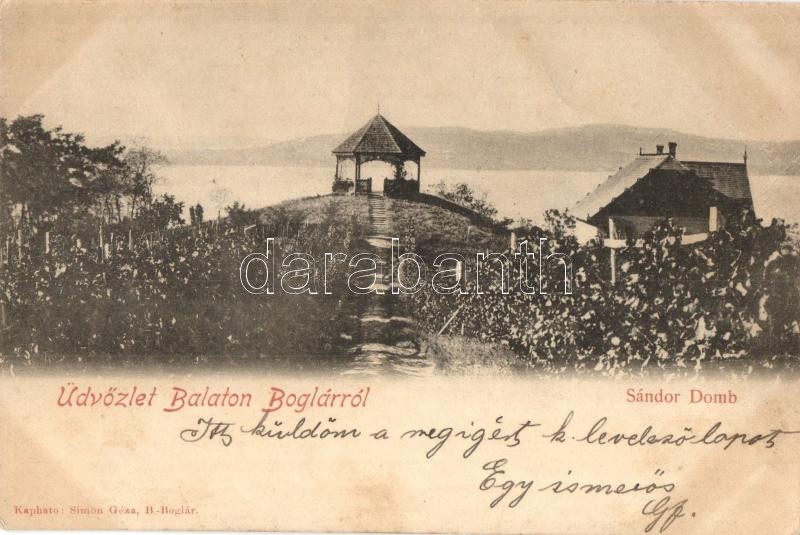 darabanth
Üdvözlet Balaton Boglárról
Sándor Domb
Itt küldöm a megigért k. levelező lapot
Egy ismerős
Gf.
Kapható: Simon Géza, B.-Boglár.